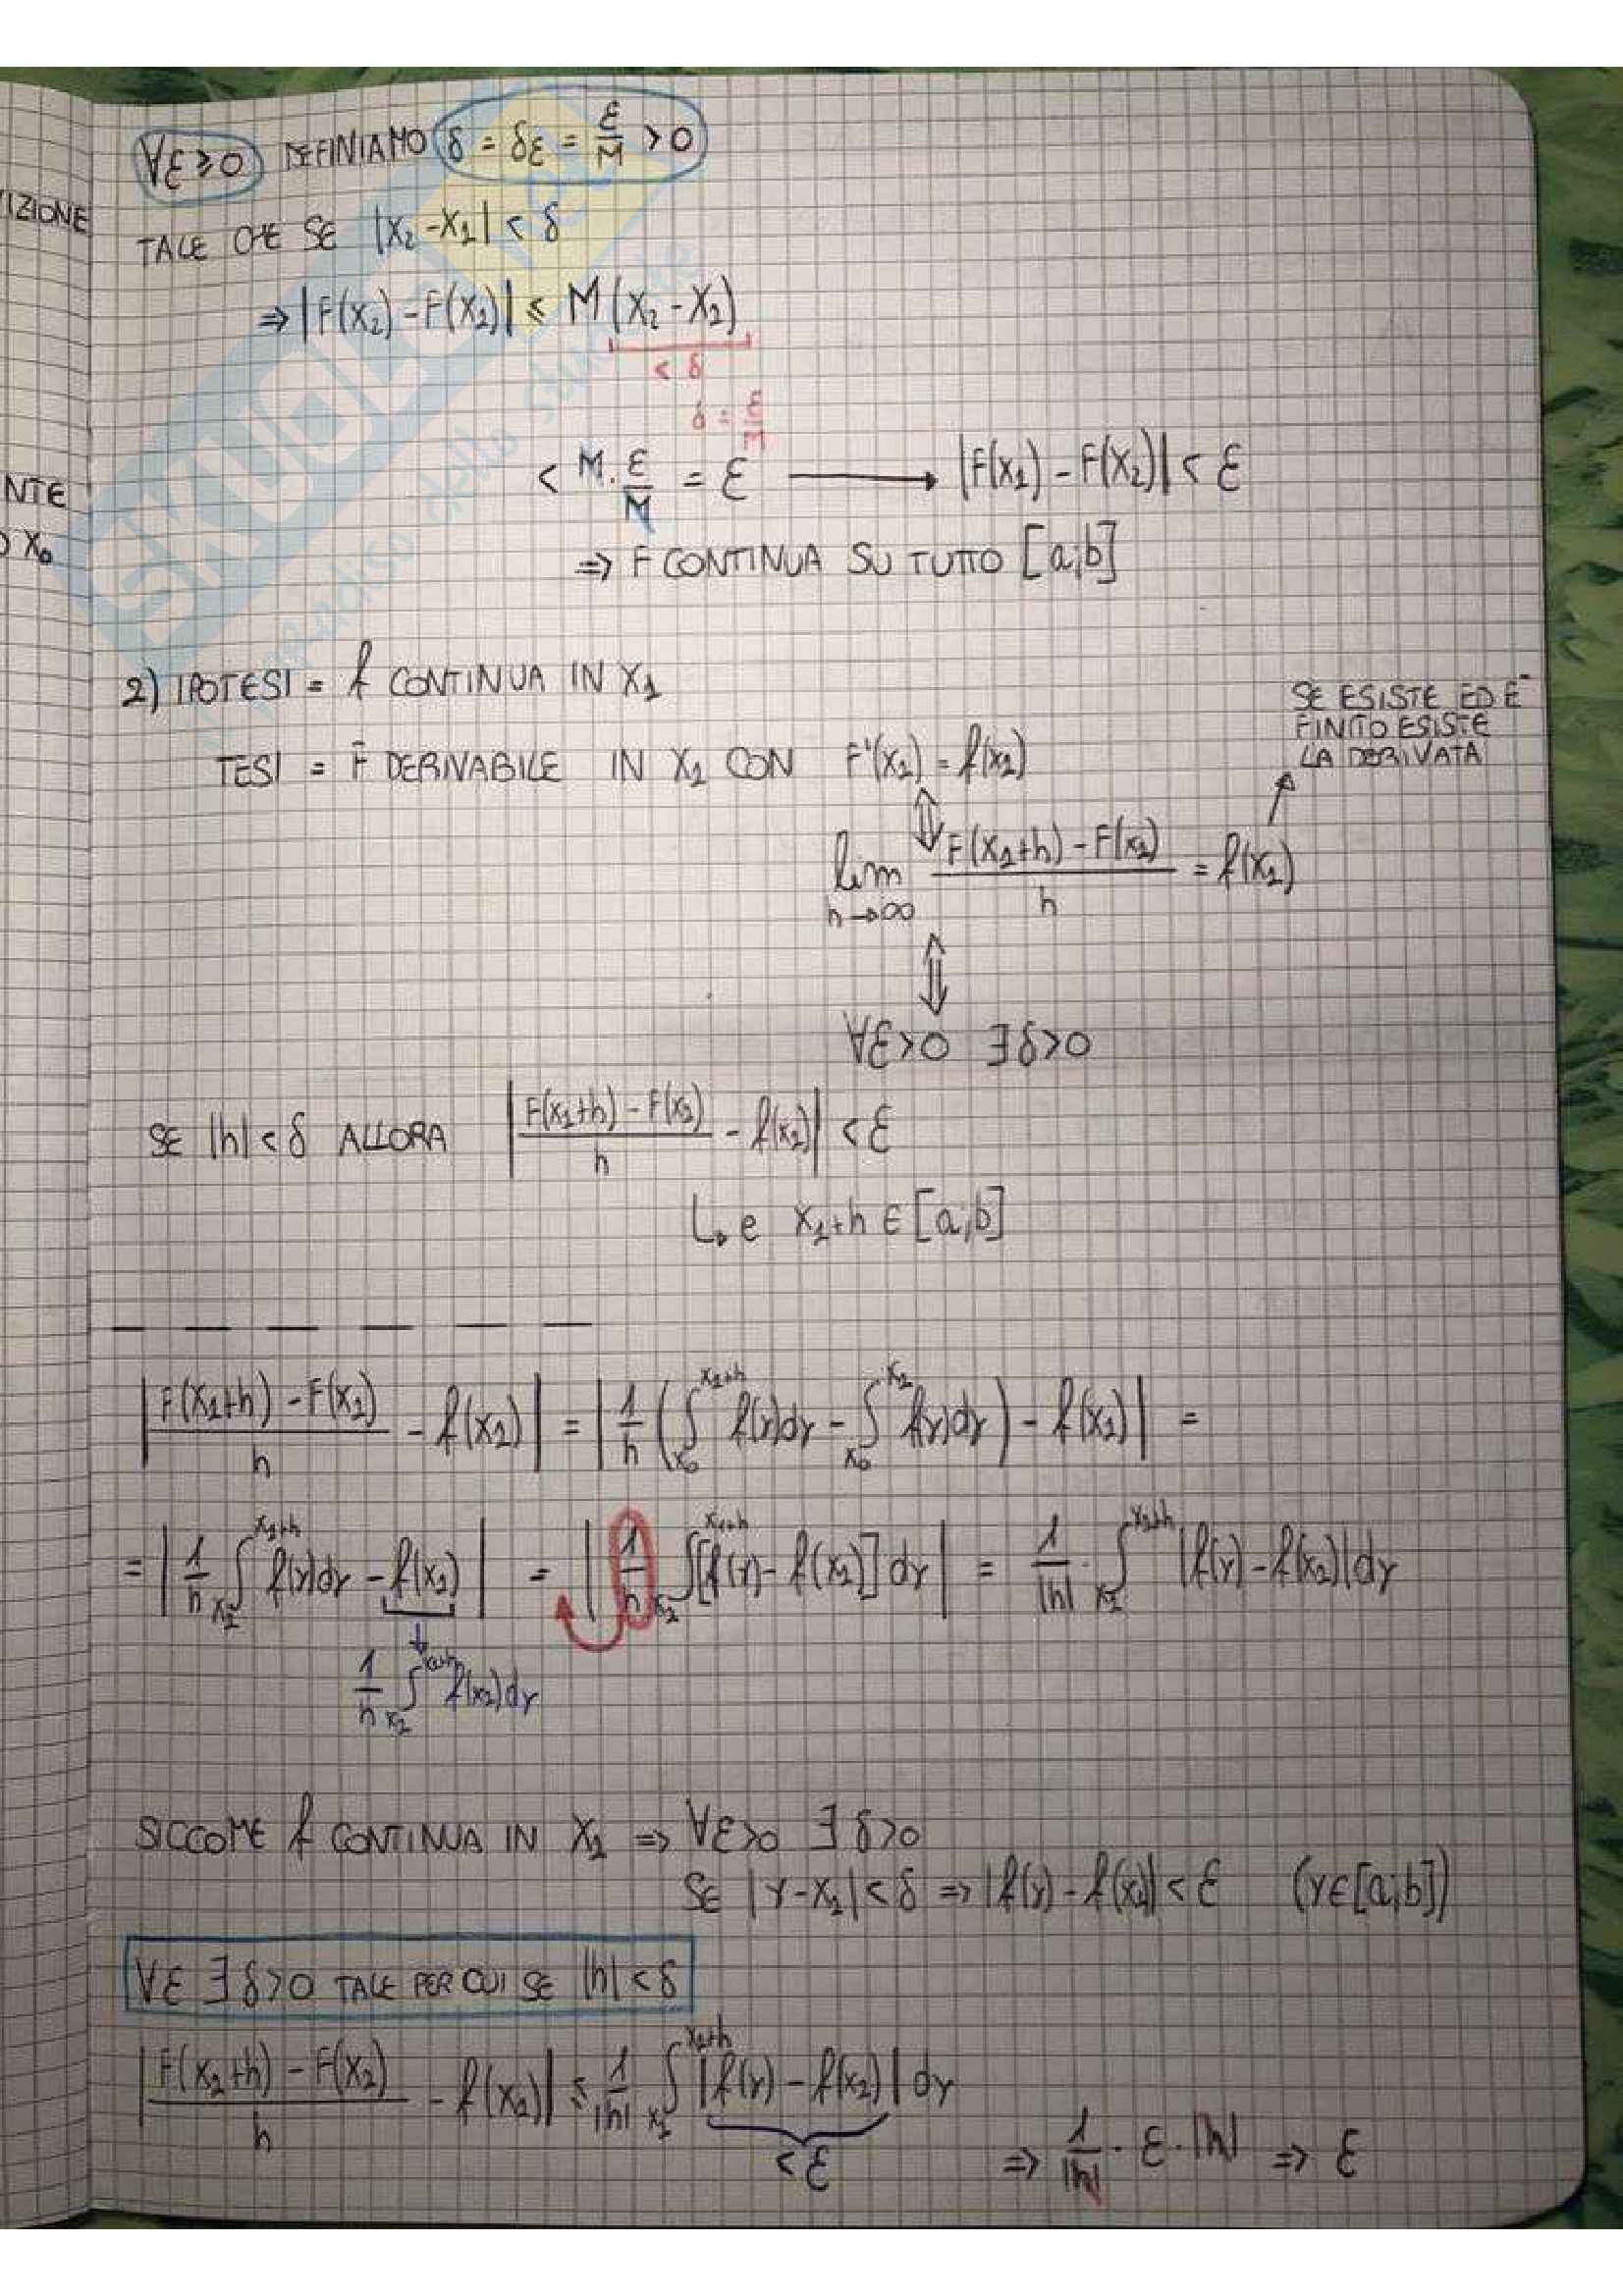 ∀ε≥0 DEFINIAMO δ = δε = ε/M > 0
IZIONE
TALE CHE SE |x₂-x₁| < δ
⇒ |F(x₂) - F(x₁)| ≤ M(x₂ - x₁)
< δ
δ = ε/M
< M · ε/M = ε ⟶ |F(x₁) - F(x₂)| < ε
NTE
O x₀
⇒ F CONTINUA SU TUTTO [a;b]
2) IPOTESI = f CONTINUA IN x₁
SE ESISTE ED È
FINITO ESISTE
LA DERIVATA
TESI = F DERIVABILE IN x₁ CON F'(x₁) = f(x₁)
⇕
lim h→∞ (F(x₁+h) - F(x₁))/h = f(x₁)
⇕
∀ε>0 ∃δ>0
SE |h| < δ ALLORA |(F(x₁+h) - F(x₁))/h - f(x₁)| < ε
↳ e x₁+h ∈ [a;b]
|(F(x₁+h) - F(x₁))/h - f(x₁)| = |1/h (∫_{x₀}^{x₁+h} f(y)dy - ∫_{x₀}^{x₁} f(y)dy) - f(x₁)| =
= |1/h ∫_{x₁}^{x₁+h} f(y)dy - f(x₁)| = |1/h ∫_{x₁}^{x₁+h} [f(y) - f(x₁)] dy| = 1/|h| · ∫_{x₁}^{x₁+h} |f(y) - f(x₁)| dy
1/h ∫_{x₁}^{x₁+h} f(x₁)dy
SICCOME f CONTINUA IN x₁ ⇒ ∀ε>0 ∃δ>0
SE |y-x₁| < δ ⇒ |f(y) - f(x₁)| < ε (y∈[a;b])
∀ε ∃δ>0 TALE PER CUI SE |h| < δ
|(F(x₁+h) - F(x₁))/h - f(x₁)| ≤ 1/|h| ∫_{x₁}^{x₁+h} |f(y) - f(x₁)| dy
< ε
⇒ 1/|h| · ε · |h| ⇒ ε